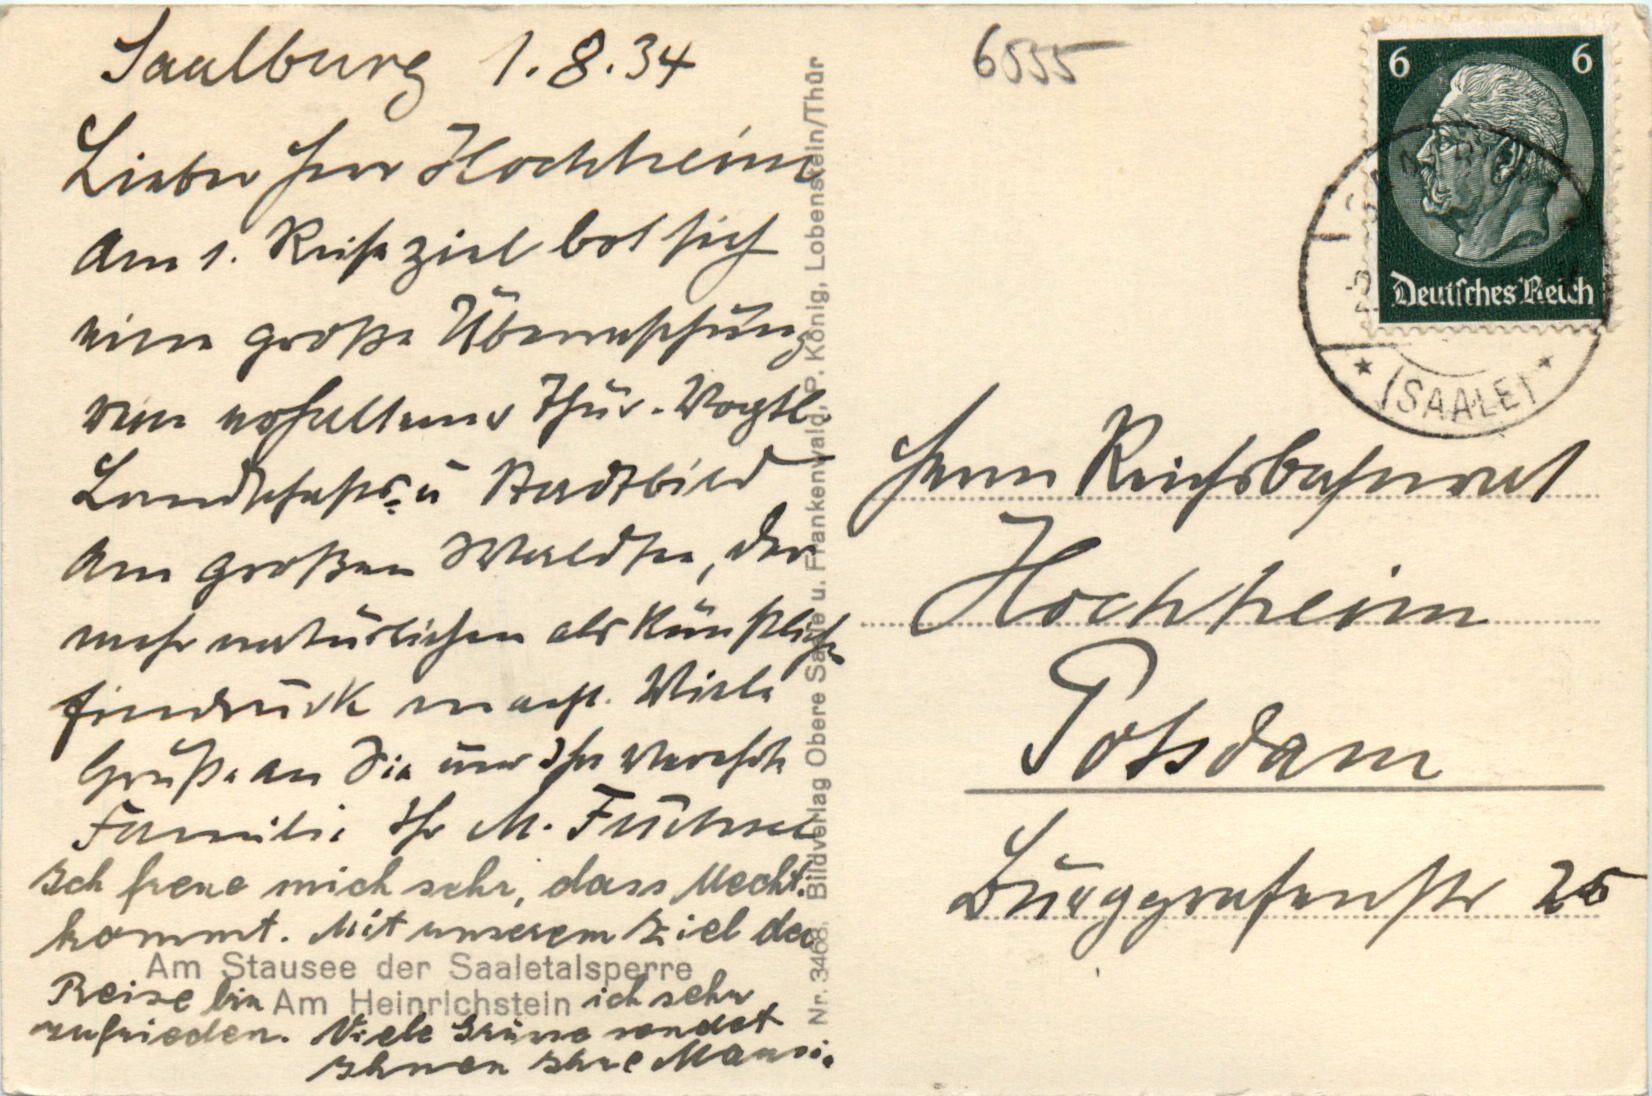 Saalburg 1.8.34
Lieber Herr Hochheim
Am 1. Reiseziel bot sich
eine große Überraschung
von Thür. Vogtl.
Landschafts- u Stadtbild
am großen Waldsee, der
mehr natürlichen als künstlichen
Eindruck macht. Viele
Grüße an Sie und Ihre verehrte
Familie Ihr M. Füchsel
Ich freue mich sehr, dass Mecht.
kommt. Mit unserem Ziel der
Reise bin ich sehr
zufrieden. Viele Grüsse sendet
Ihnen Ihre
Am Stausee der Saaletalsperre
Am Heinrichstein
Nr. 3468. Bildverlag Obere Saale u. Frankenwald, P. König, Lobenstein/Thür
6555
6 6
Deutsches Reich
(SAALE)
Herrn Reichsbahnrat
Hochheim
Potsdam
Burggrafenstr 25